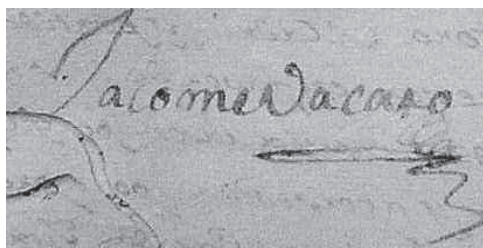 Jacome Vacaro